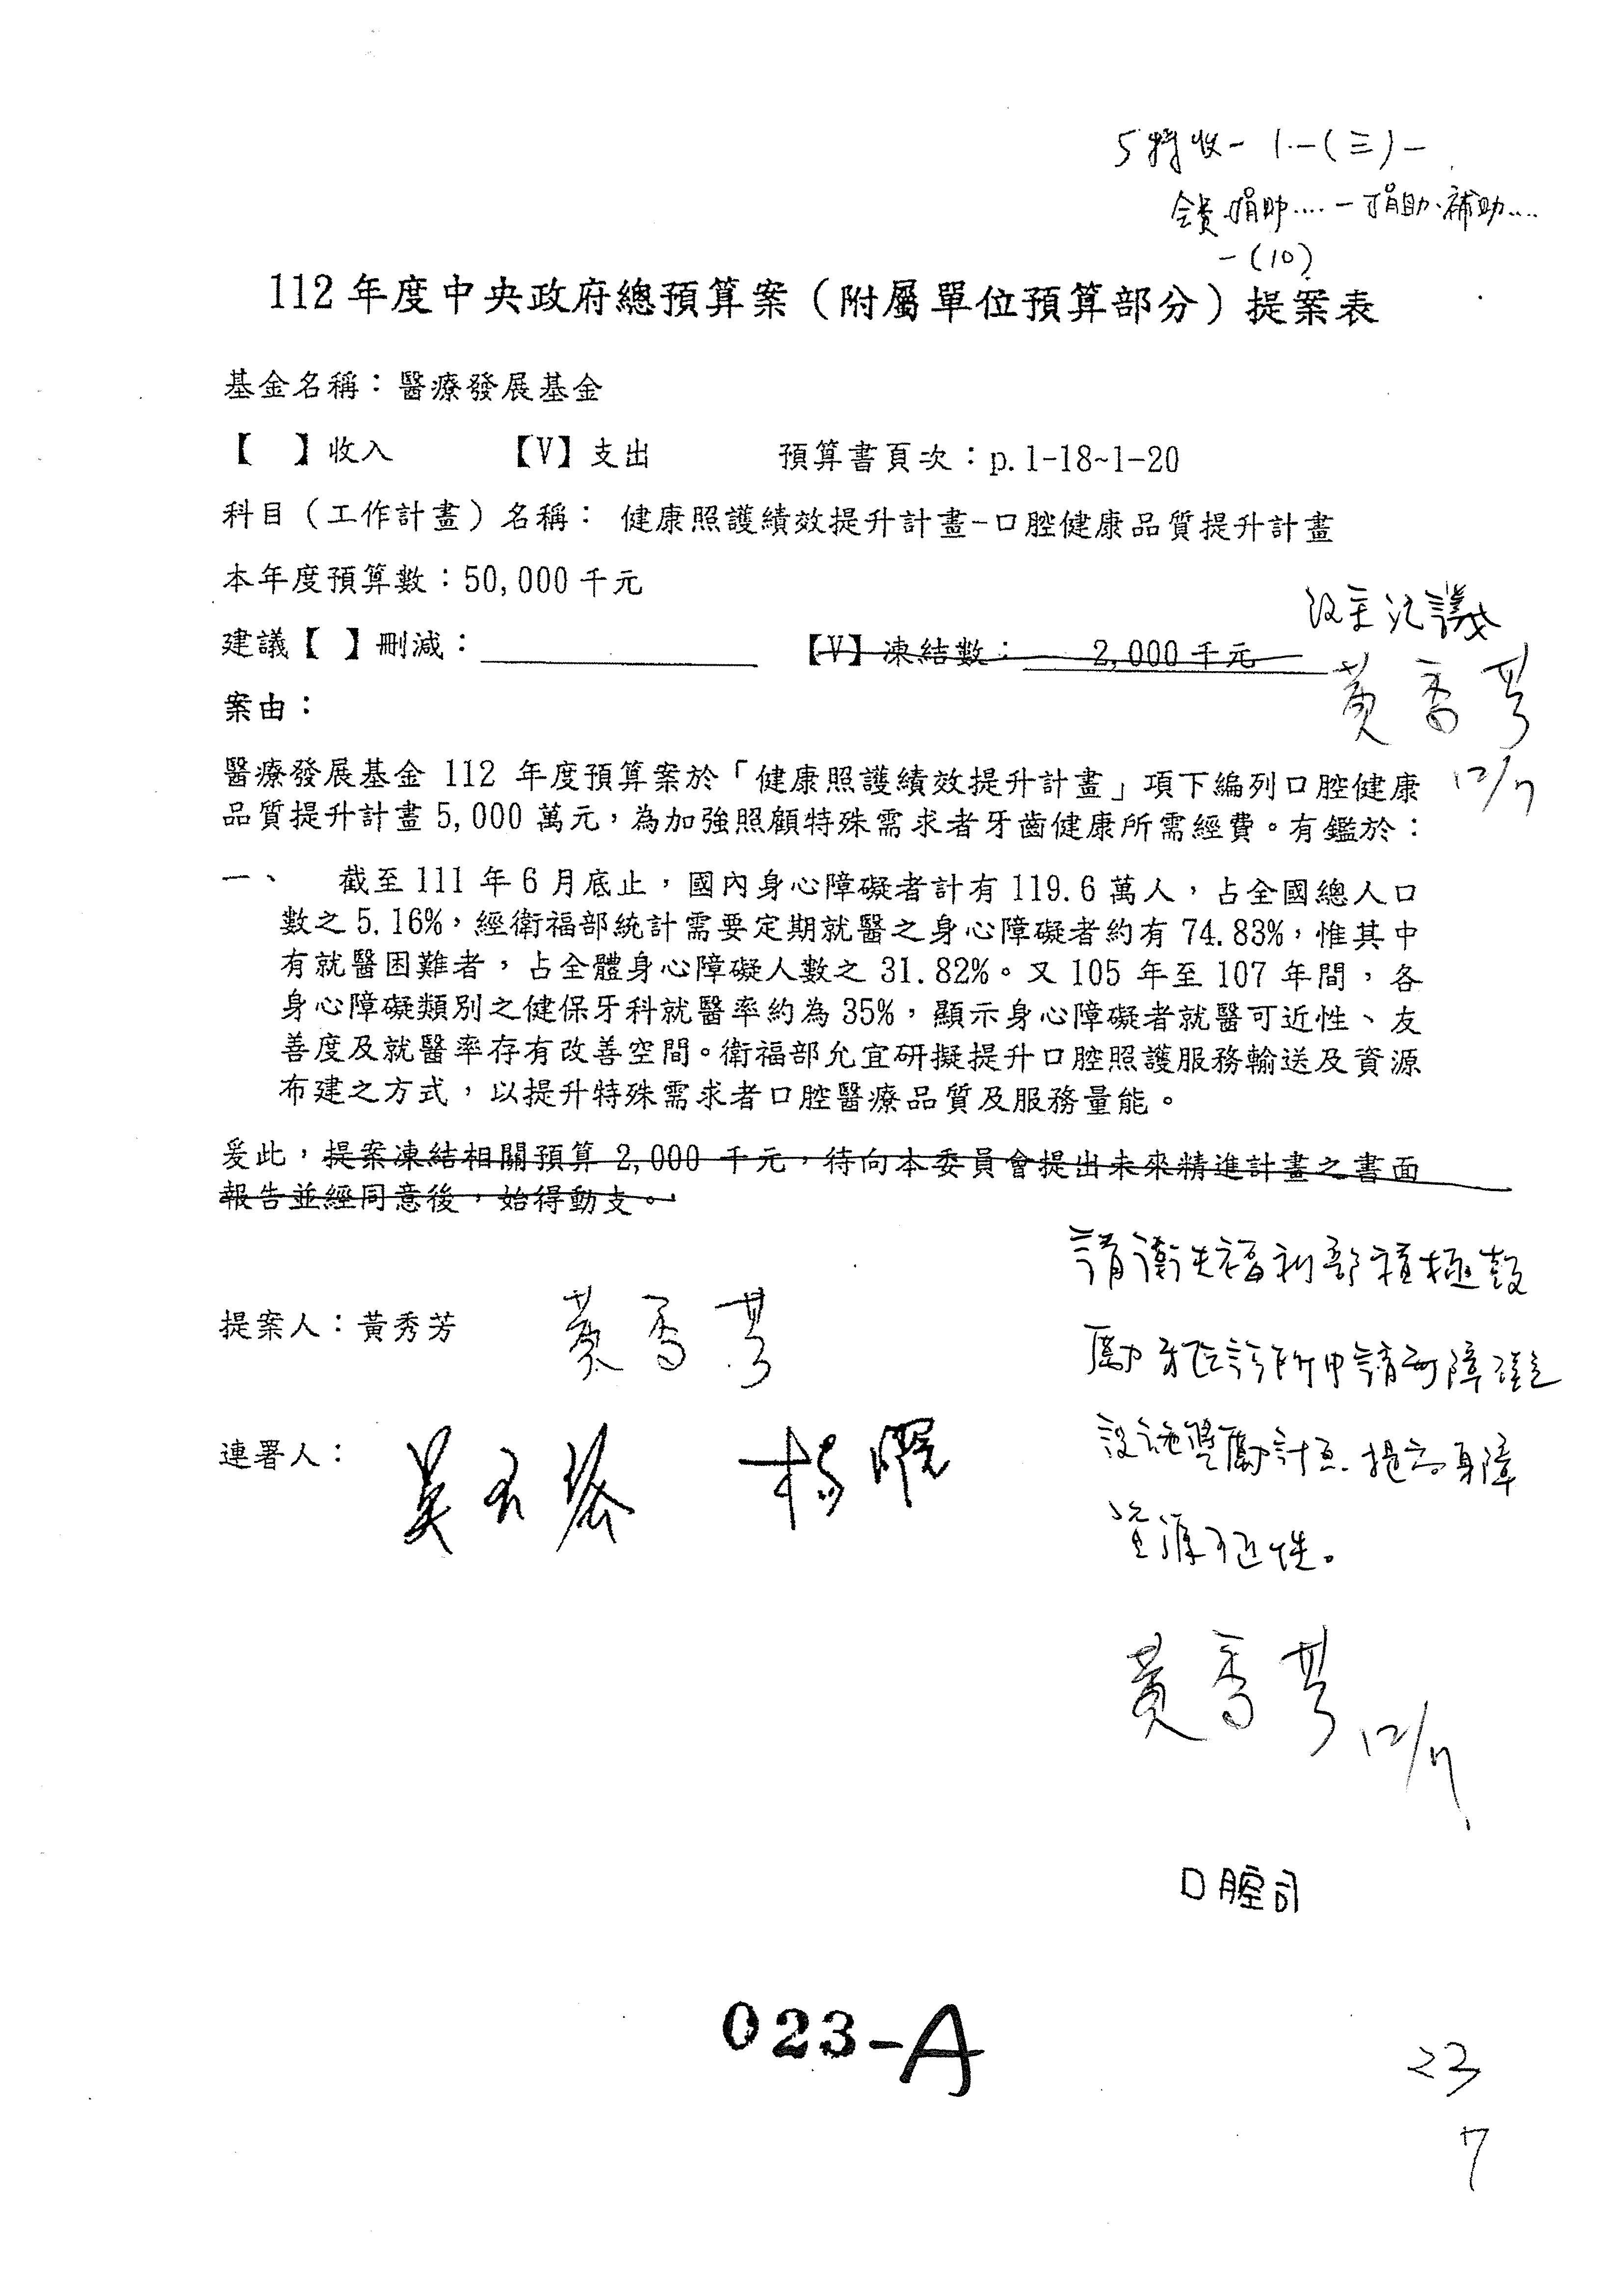 5特收-1.-(三)-
会費.捐助....-捐助.補助....
-(10)
112年度中央政府總預算案（附屬單位預算部分）提案表
基金名稱：醫療發展基金
【 】收入 【V】支出 預算書頁次：p.1-18~1-20
科目（工作計畫）名稱： 健康照護績效提升計畫-口腔健康品質提升計畫
本年度預算數：50,000千元
改主決議
建議【 】刪減： 【V】凍結數： 2,000千元
黃秀芳
案由：
12/7
醫療發展基金 112 年度預算案於「健康照護績效提升計畫」項下編列口腔健康
品質提升計畫 5,000 萬元，為加強照顧特殊需求者牙齒健康所需經費。有鑑於：
一、 截至 111 年 6 月底止，國內身心障礙者計有 119.6 萬人，占全國總人口
數之 5.16%，經衛福部統計需要定期就醫之身心障礙者約有 74.83%，惟其中
有就醫困難者，占全體身心障礙人數之 31.82%。又 105 年至 107 年間，各
身心障礙類別之健保牙科就醫率約為 35%，顯示身心障礙者就醫可近性、友
善度及就醫率存有改善空間。衛福部允宜研擬提升口腔照護服務輸送及資源
布建之方式，以提升特殊需求者口腔醫療品質及服務量能。
爰此，提案凍結相關預算 2,000 千元，待向本委員會提出未來精進計畫之書面
報告並經同意後，始得動支。
請衛生福利部積極鼓
提案人：黃秀芳 黃秀芳
勵牙医診所申請無障礙
連署人： 楊曜
設施獎勵計画.提高身障
資源可近性。
黃秀芳 12/7
口腔司
023-A
23
7